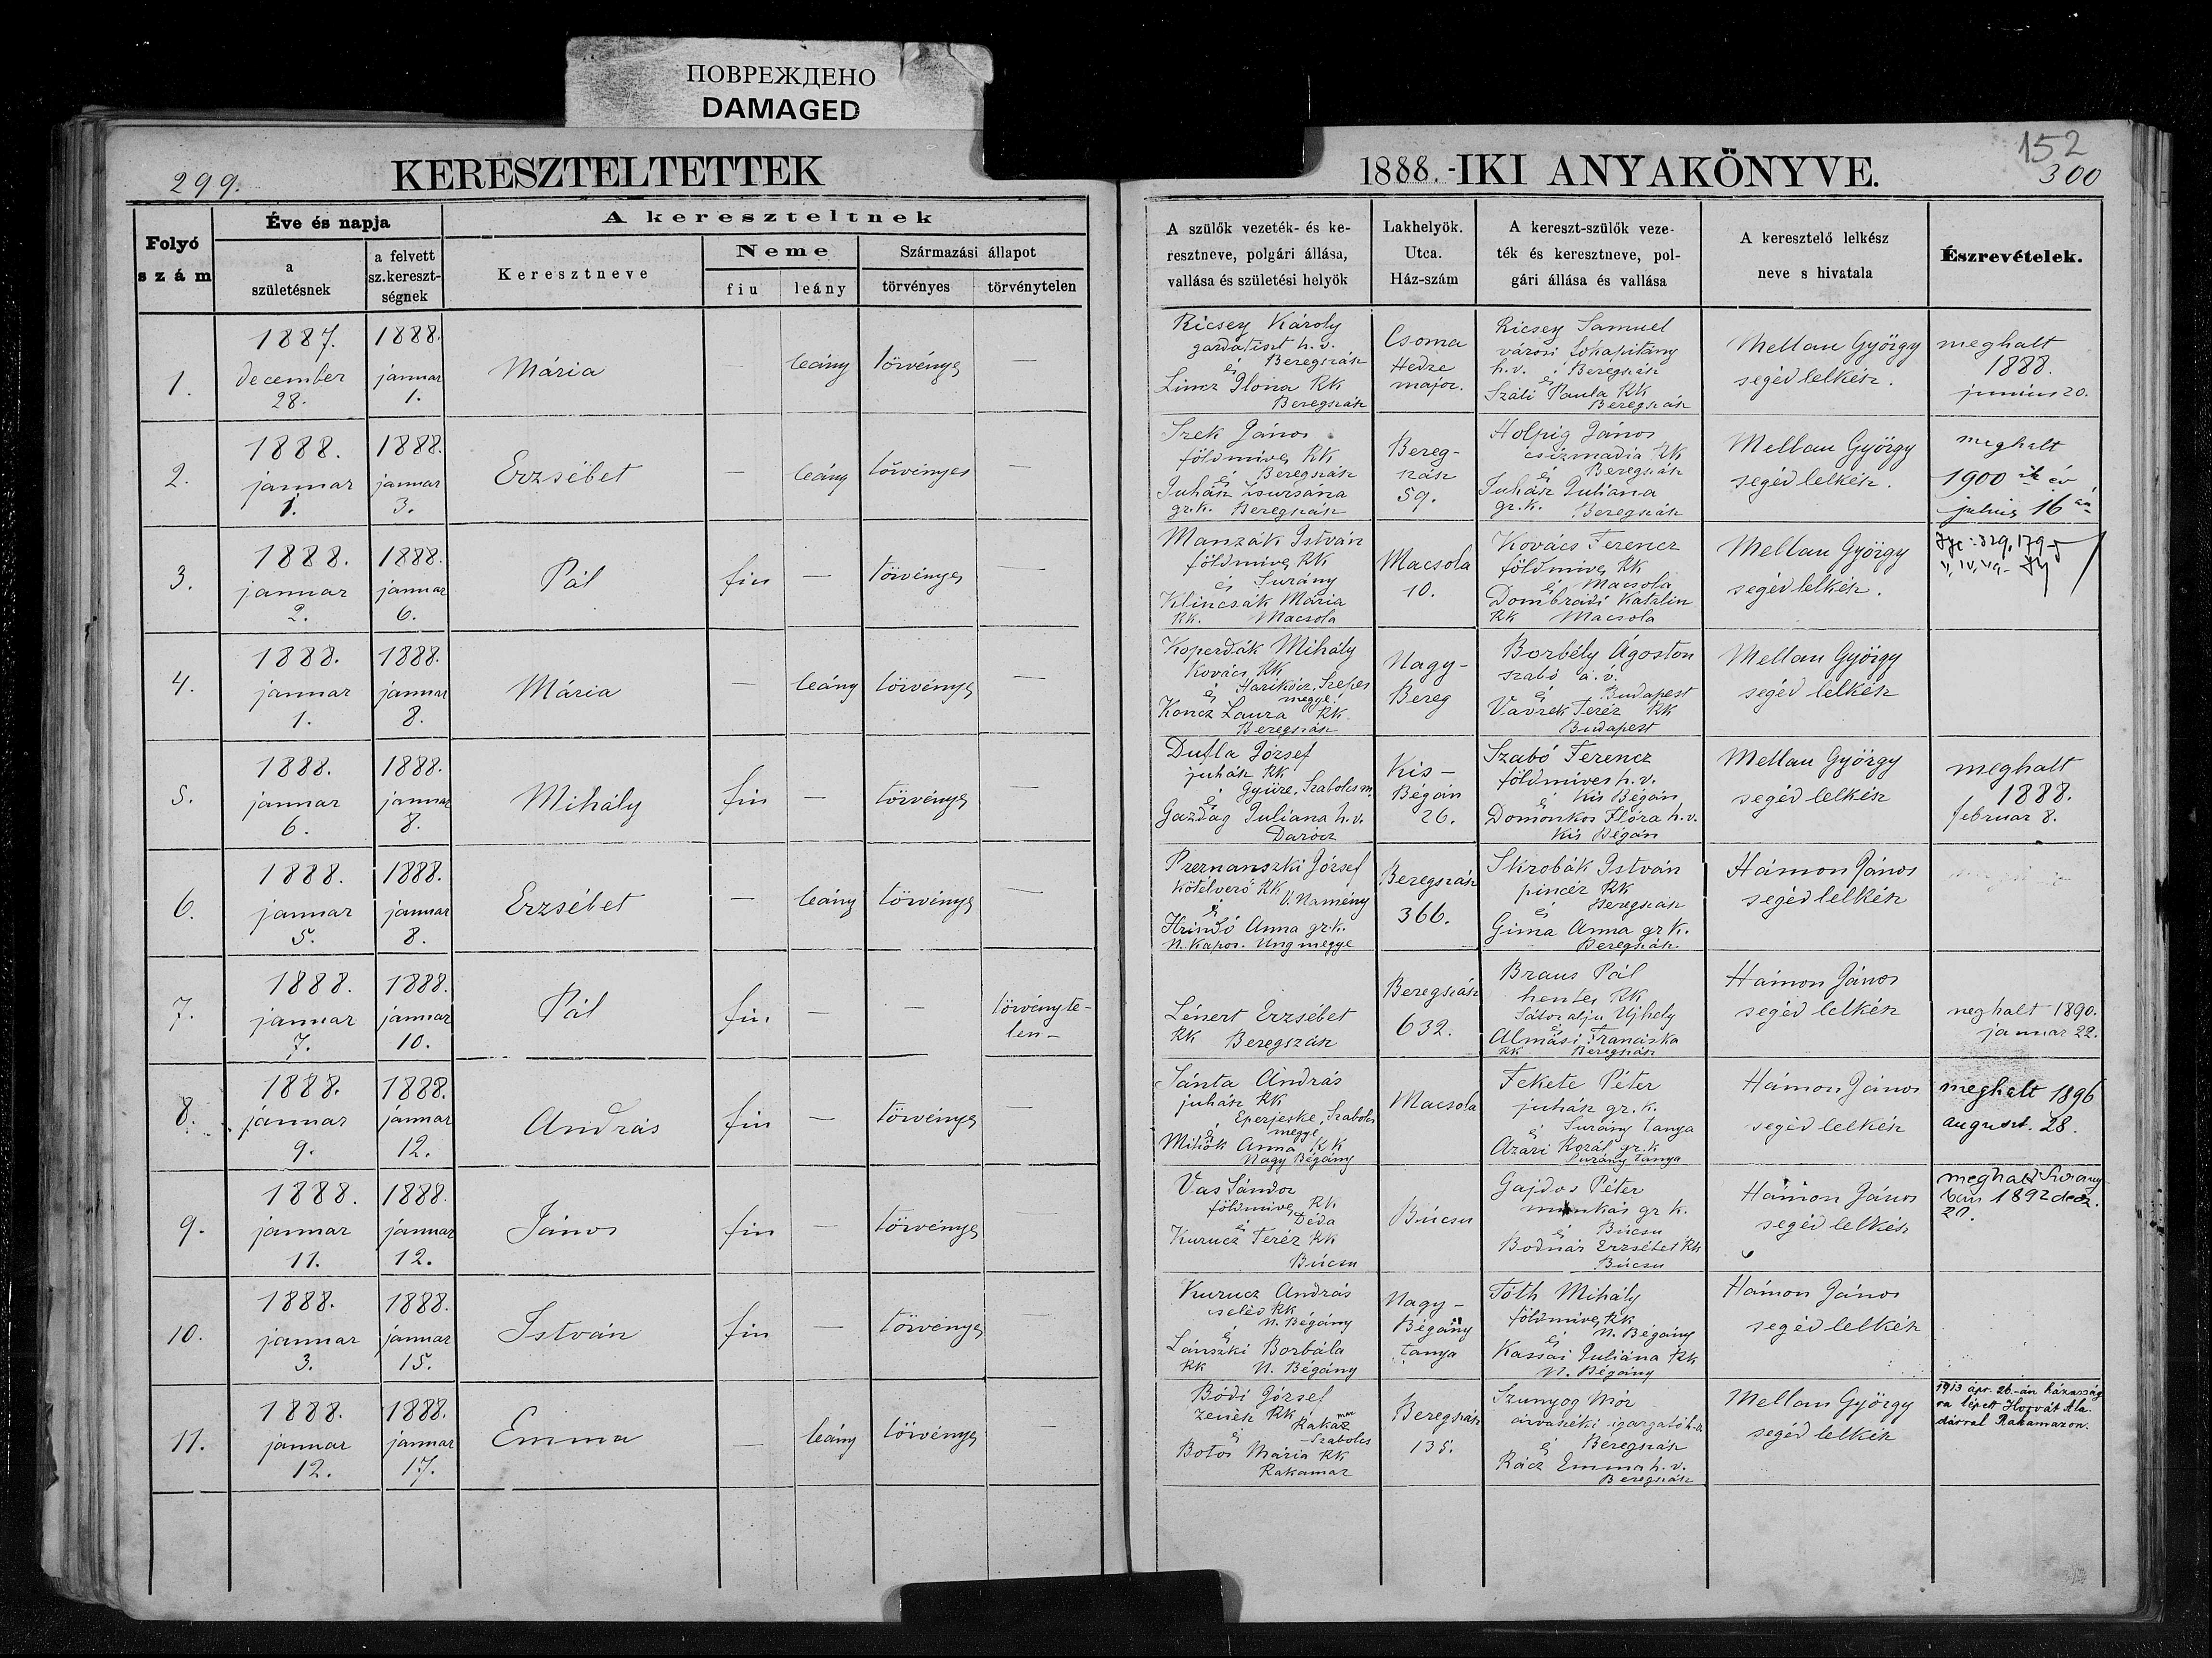 ПОВРЕЖДЕНО
DAMAGED
299.
KERESZTELTETTEK
Folyó
szám
Éve és napja
a
születésnek
a felvett
sz.kereszt-
ségnek
A kereszteltnek
Keresztneve
Neme
fiu
leány
Származási állapot
törvényes
törvénytelen
1.
1887.
december
28.
1888.
januar
1.
Mária
—
leány
törvényes
—
2.
1888.
januar
1.
1888.
januar
3.
Erzsébet
—
leány
törvényes
—
3.
1888.
januar
2.
1888.
januar
6.
Pál
fiu
—
törvényes
—
4.
1888.
januar
1.
1888.
januar
8.
Mária
—
leány
törvényes
—
5.
1888.
januar
6.
1888.
januar
8.
Mihály
fiu
—
törvényes
—
6.
1888.
januar
5.
1888.
januar
8.
Erzsébet
—
leány
törvényes
—
7.
1888.
januar
7.
1888.
januar
10.
Pál
fiu.
—
—
törvényte-
len—
8.
1888.
januar
9.
1888.
januar
12.
András
fiu
—
törvényes
—
9.
1888.
januar
11.
1888.
januar
12.
János
fiu
—
törvényes
—
10.
1888.
januar
3.
1888.
januar
15.
István
fiu
—
törvényes
—
11.
1888.
januar
12.
1888.
januar
17.
Emma
—
leány
törvényes
—
152
300
1888.-IKI ANYAKÖNYVE.
A szülők vezeték- és ke-
resztneve, polgári állása,
vallása és születési helyök
Lakhelyök.
Utca.
Ház-szám
A kereszt-szülők veze-
ték és keresztneve, pol-
gári állása és vallása
A keresztelő lelkész
neve s hivatala
Észrevételek.
Ricsey Károly
gazdatiszt h. v.
és Beregszász
Ilona RK
Beregszász
Csoma
Hedre
major.
Ricsey Samuel
városi főkapitány
h.v. és Beregszász
Paula RK
Beregszász
Mellau György
segédlelkész.
meghalt
1888.
junius 20.
Szek János
földmives RK
és Beregszász
Juhász Zsuzsána
gr.k. Beregszász
Bereg-
szász
59.
Holpig János
csizmadia RK
és Beregszász
Juhász Juliana
gr.k. Beregszász
Mellau György
segédlelkész.
meghalt
1900 ik év
julius 16 án
Manzák István
földmives RK
és Surány
Klincsák Mária
RK. Macsola
Macsola
10.
Kovács Ferencz
földmives RK
és Macsola
Dombrádi Katalin
RK Macsola
Mellau György
segédlelkész.
Koperdák Mihály
Kovács RK
és Harikócz, Szepes
megye.
Koncz Laura RK
Beregszász
Nagy-
Bereg
Borbély Ágoston
szabó á. v.
és Budapest
Vavrek Teréz RK
Budapest
Mellau György
segéd lelkész
Dufla József
juhász RK
és Gyüre, Szabolcs m.
Gazdag Juliana h.v.
Darócz
Kis-
Bégán
26.
Szabó Ferencz
földmives h.v.
és Kis Bégán
Domonkos Flóra h.v.
Kis Bégán
Mellau György
segéd lelkész
meghalt
1888.
februar 8.
Preznanszki József
kötélverő RK
és V. Namény
Hrindó Anna gr.k.
N. Kapos. Ung megye
Beregszász
366.
Skrobák István
pincér RK
és Beregszász
Gima Anna gr k.
Beregszász
Hámon János
segéd lelkész
Lénert Erzsébet
RK Beregszász
Beregszász
632.
Braus Pál
hentes RK
Sátoralja Ujhely
és
Almási Franciska
RK Beregszász
Hámon János
segéd lelkész
meghalt 1890.
januar 22.
Sánta András
juhász RK
Eperjeske, Szabolcs
és megye
Milók Anna RK
Nagy Bégány
Macsola
Fekete Péter
juhász gr. k.
és Surány tanya
Azari Rozál gr.k
Surány tanya
Hámon János
segéd lelkész
meghalt 1896
august. 28.
Vas Sándor
földmives RK.
és Déda
Kurucz Teréz RK
Búcsu
Búcsu
Gajdos Péter
munkás gr k.
és Búcsu
Bodnár Erzsébet RK
Búcsu
Hámon János
segéd lelkész
meghalt Surány-
ban 1892 decz.
20.
Kurucz András
seléd RK
N. Bégány
és
Lánszki Borbála
RK N. Bégány
Nagy-
Bégány
tanya
Tóth Mihály
földmives RK
és N. Bégány
Kassai Juliána RK
N. Bégány
Hámon János
segéd lelkész
Bódi József
zenész RK
Rakamaz
és Szabolcs
Botos Mária RK
Rakamaz
Beregszász
135.
Szunyog Mór
árvaszéki igazgató h.v.
és Beregszász
Rácz Emma h. v.
Beregszász
Mellau György
segéd lelkész
1913 ápr. 26-án házasság-
ra lépett Horvát Ala-
dárral Rakamazon.